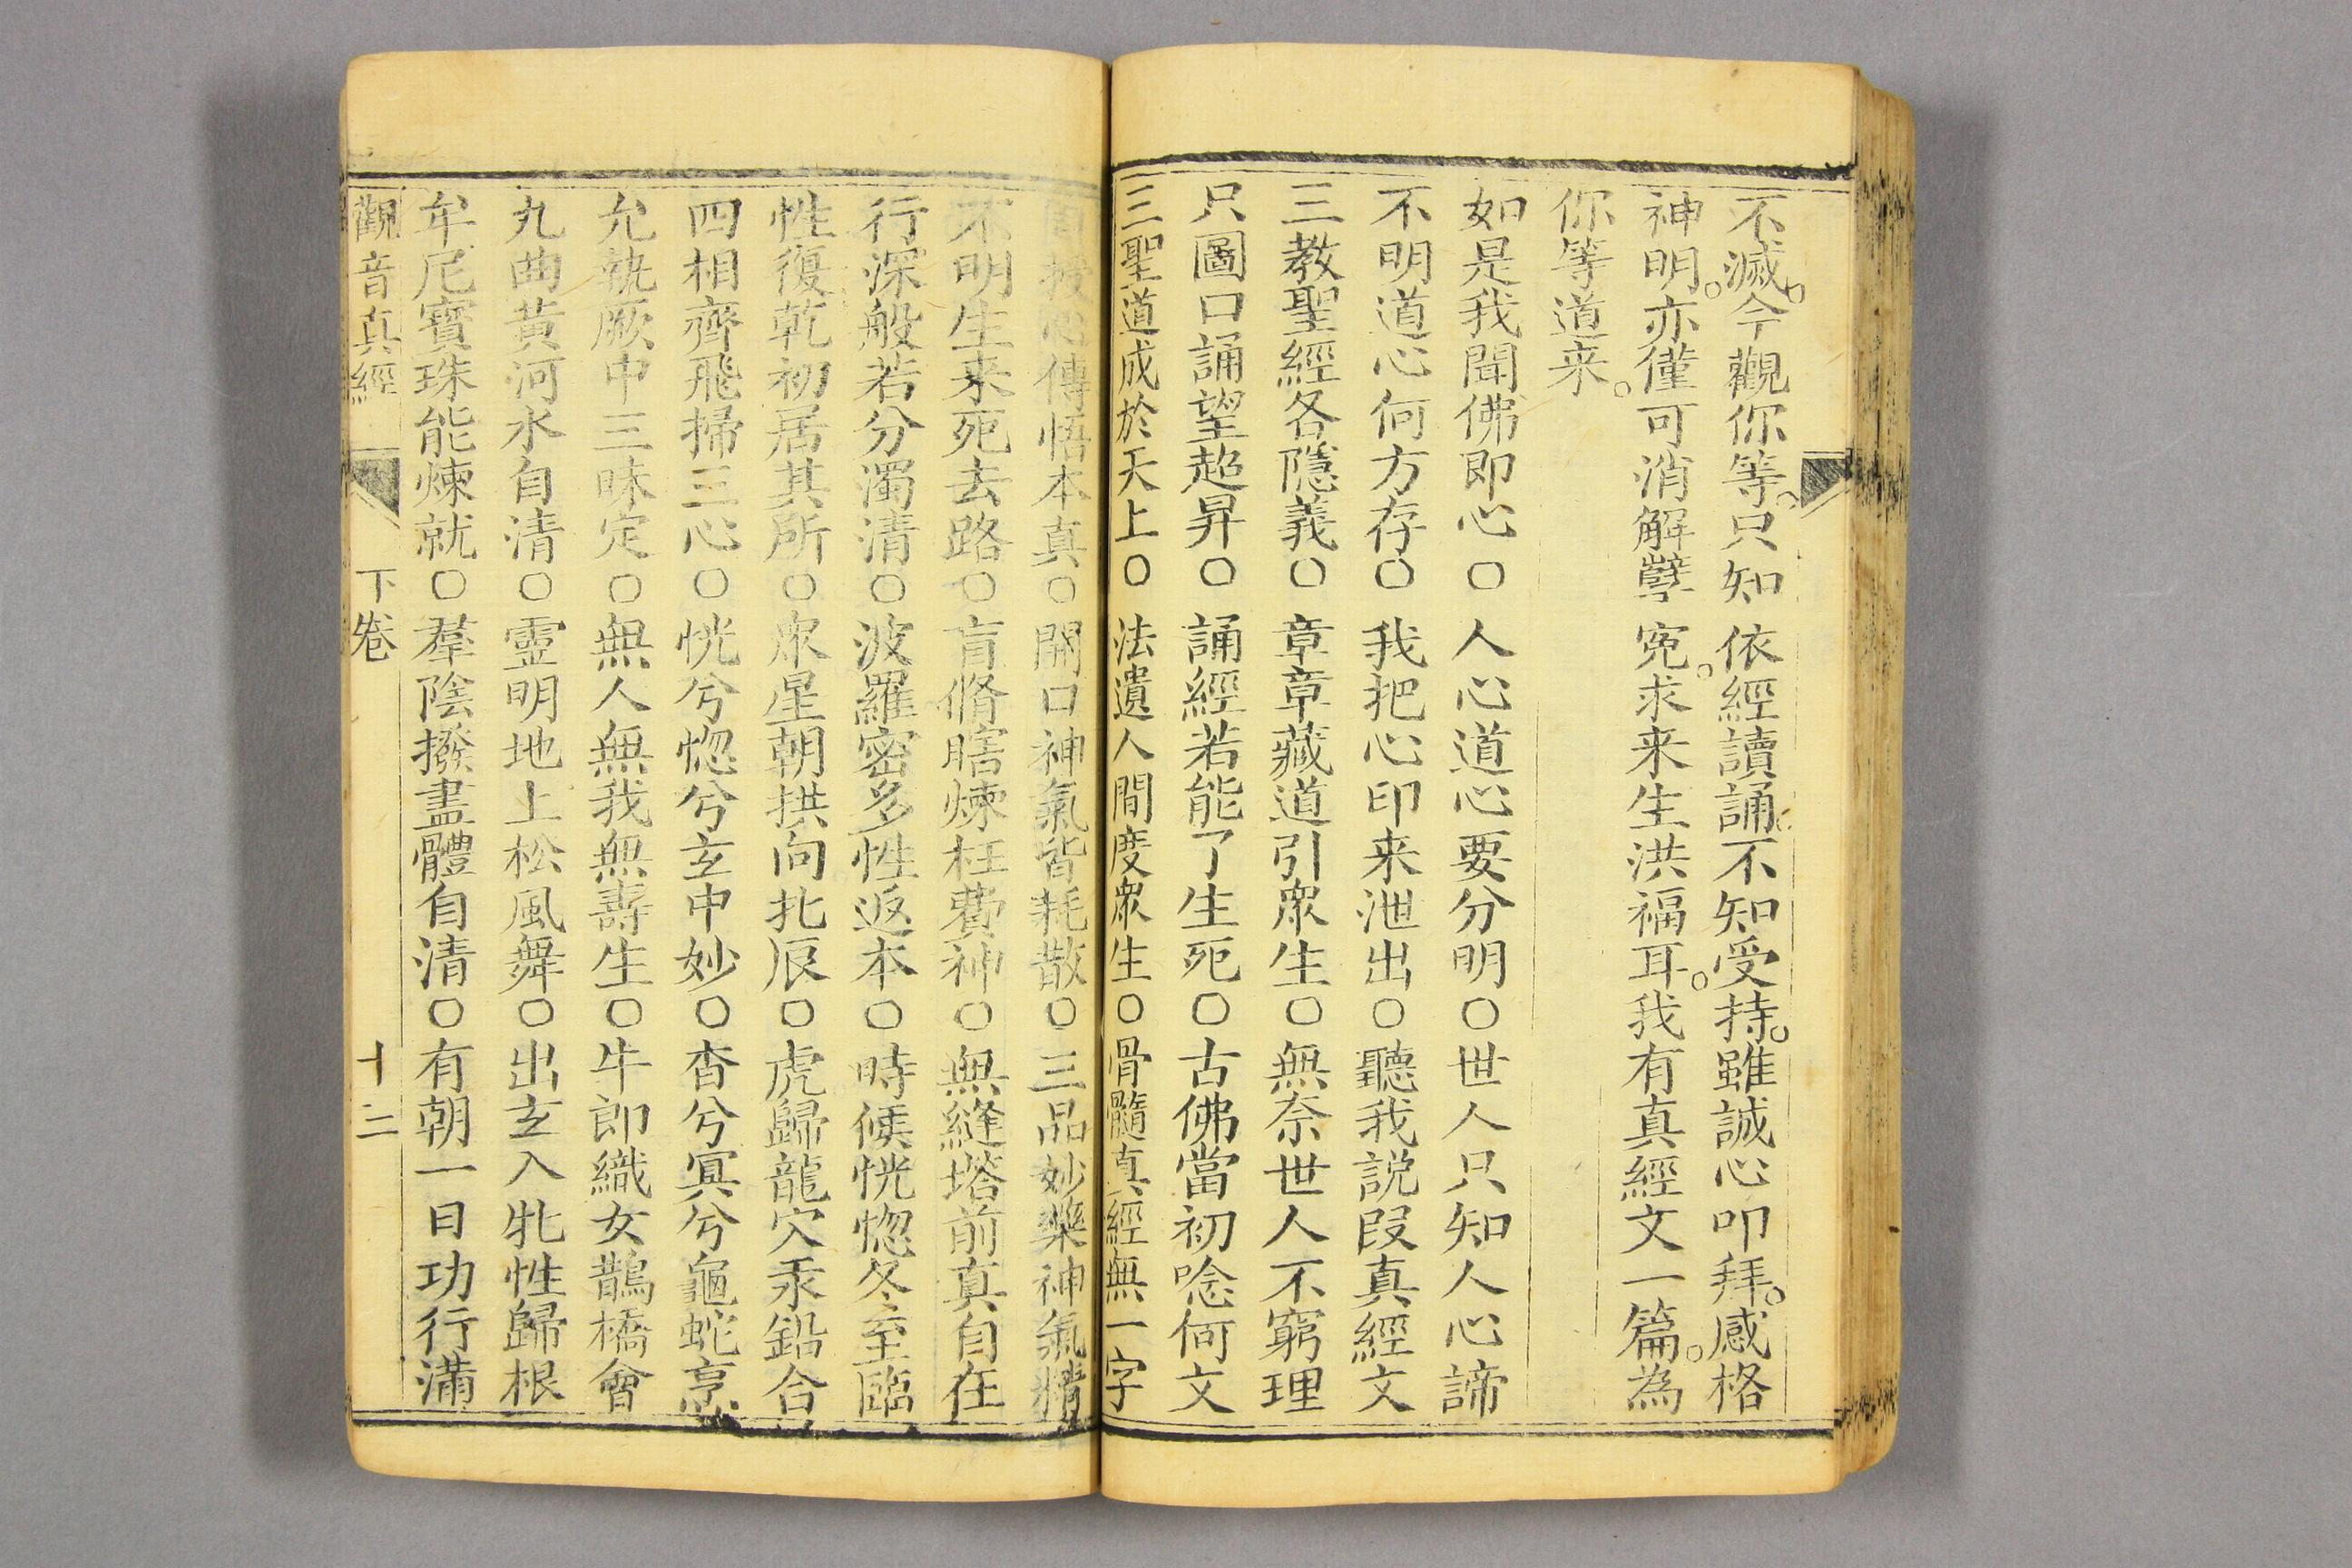 不滅。今觀你等。只知依經讀誦。不知受持。雖誠心叩拜。感格
神明。亦僅可消解孽寃。求来生洪福耳。我有真經文一篇。為
你等道来。
如是我聞佛即心○人心道心要分明○世人只知人心諦
不明道心何方存○我把心印来泄出○聽我説段真經文
三教聖經各隱義○章章藏道引眾生○無奈世人不窮理
只圖口誦望超昇○誦經若能了生死○古佛當初唸何文
三聖道成於天上○法遺人間度眾生○骨髓真經無一字
心傳悟本真○開口神氣皆耗散○三品妙藥神氣精
不明生来死去路○盲脩瞎煉枉費神○無縫塔前真自在
行深般若分濁清○波羅密多性返本○時候恍惚冬至臨
性復乾初居其所○眾星朝拱向北辰○虎歸龍穴汞鉛合
四相齊飛掃三心○恍兮惚兮玄中妙○杳兮冥兮龜蛇烹
允執厥中三昧定○無人無我無壽生○牛郎織女鵲橋會
九曲黃河水自清○靈明地上松風舞○出玄入牝性歸根
牟尼寶珠能煉就○羣陰撥盡體自清○有朝一日功行滿
觀音真經 下卷 十二